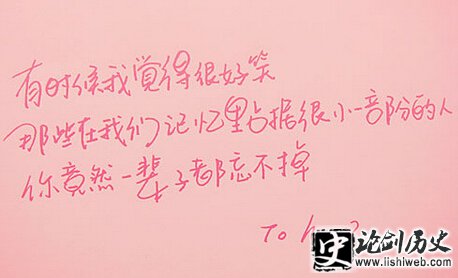 有时候我觉得很好笑
那些在我们记忆里占据很小一部分的人
你竟然一辈子都忘不掉
To
史 论剑历史
www.lishiweb.com